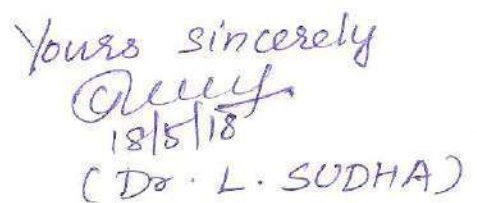 Yours sincerely
18/5/18
(Dr. L. SUDHA)